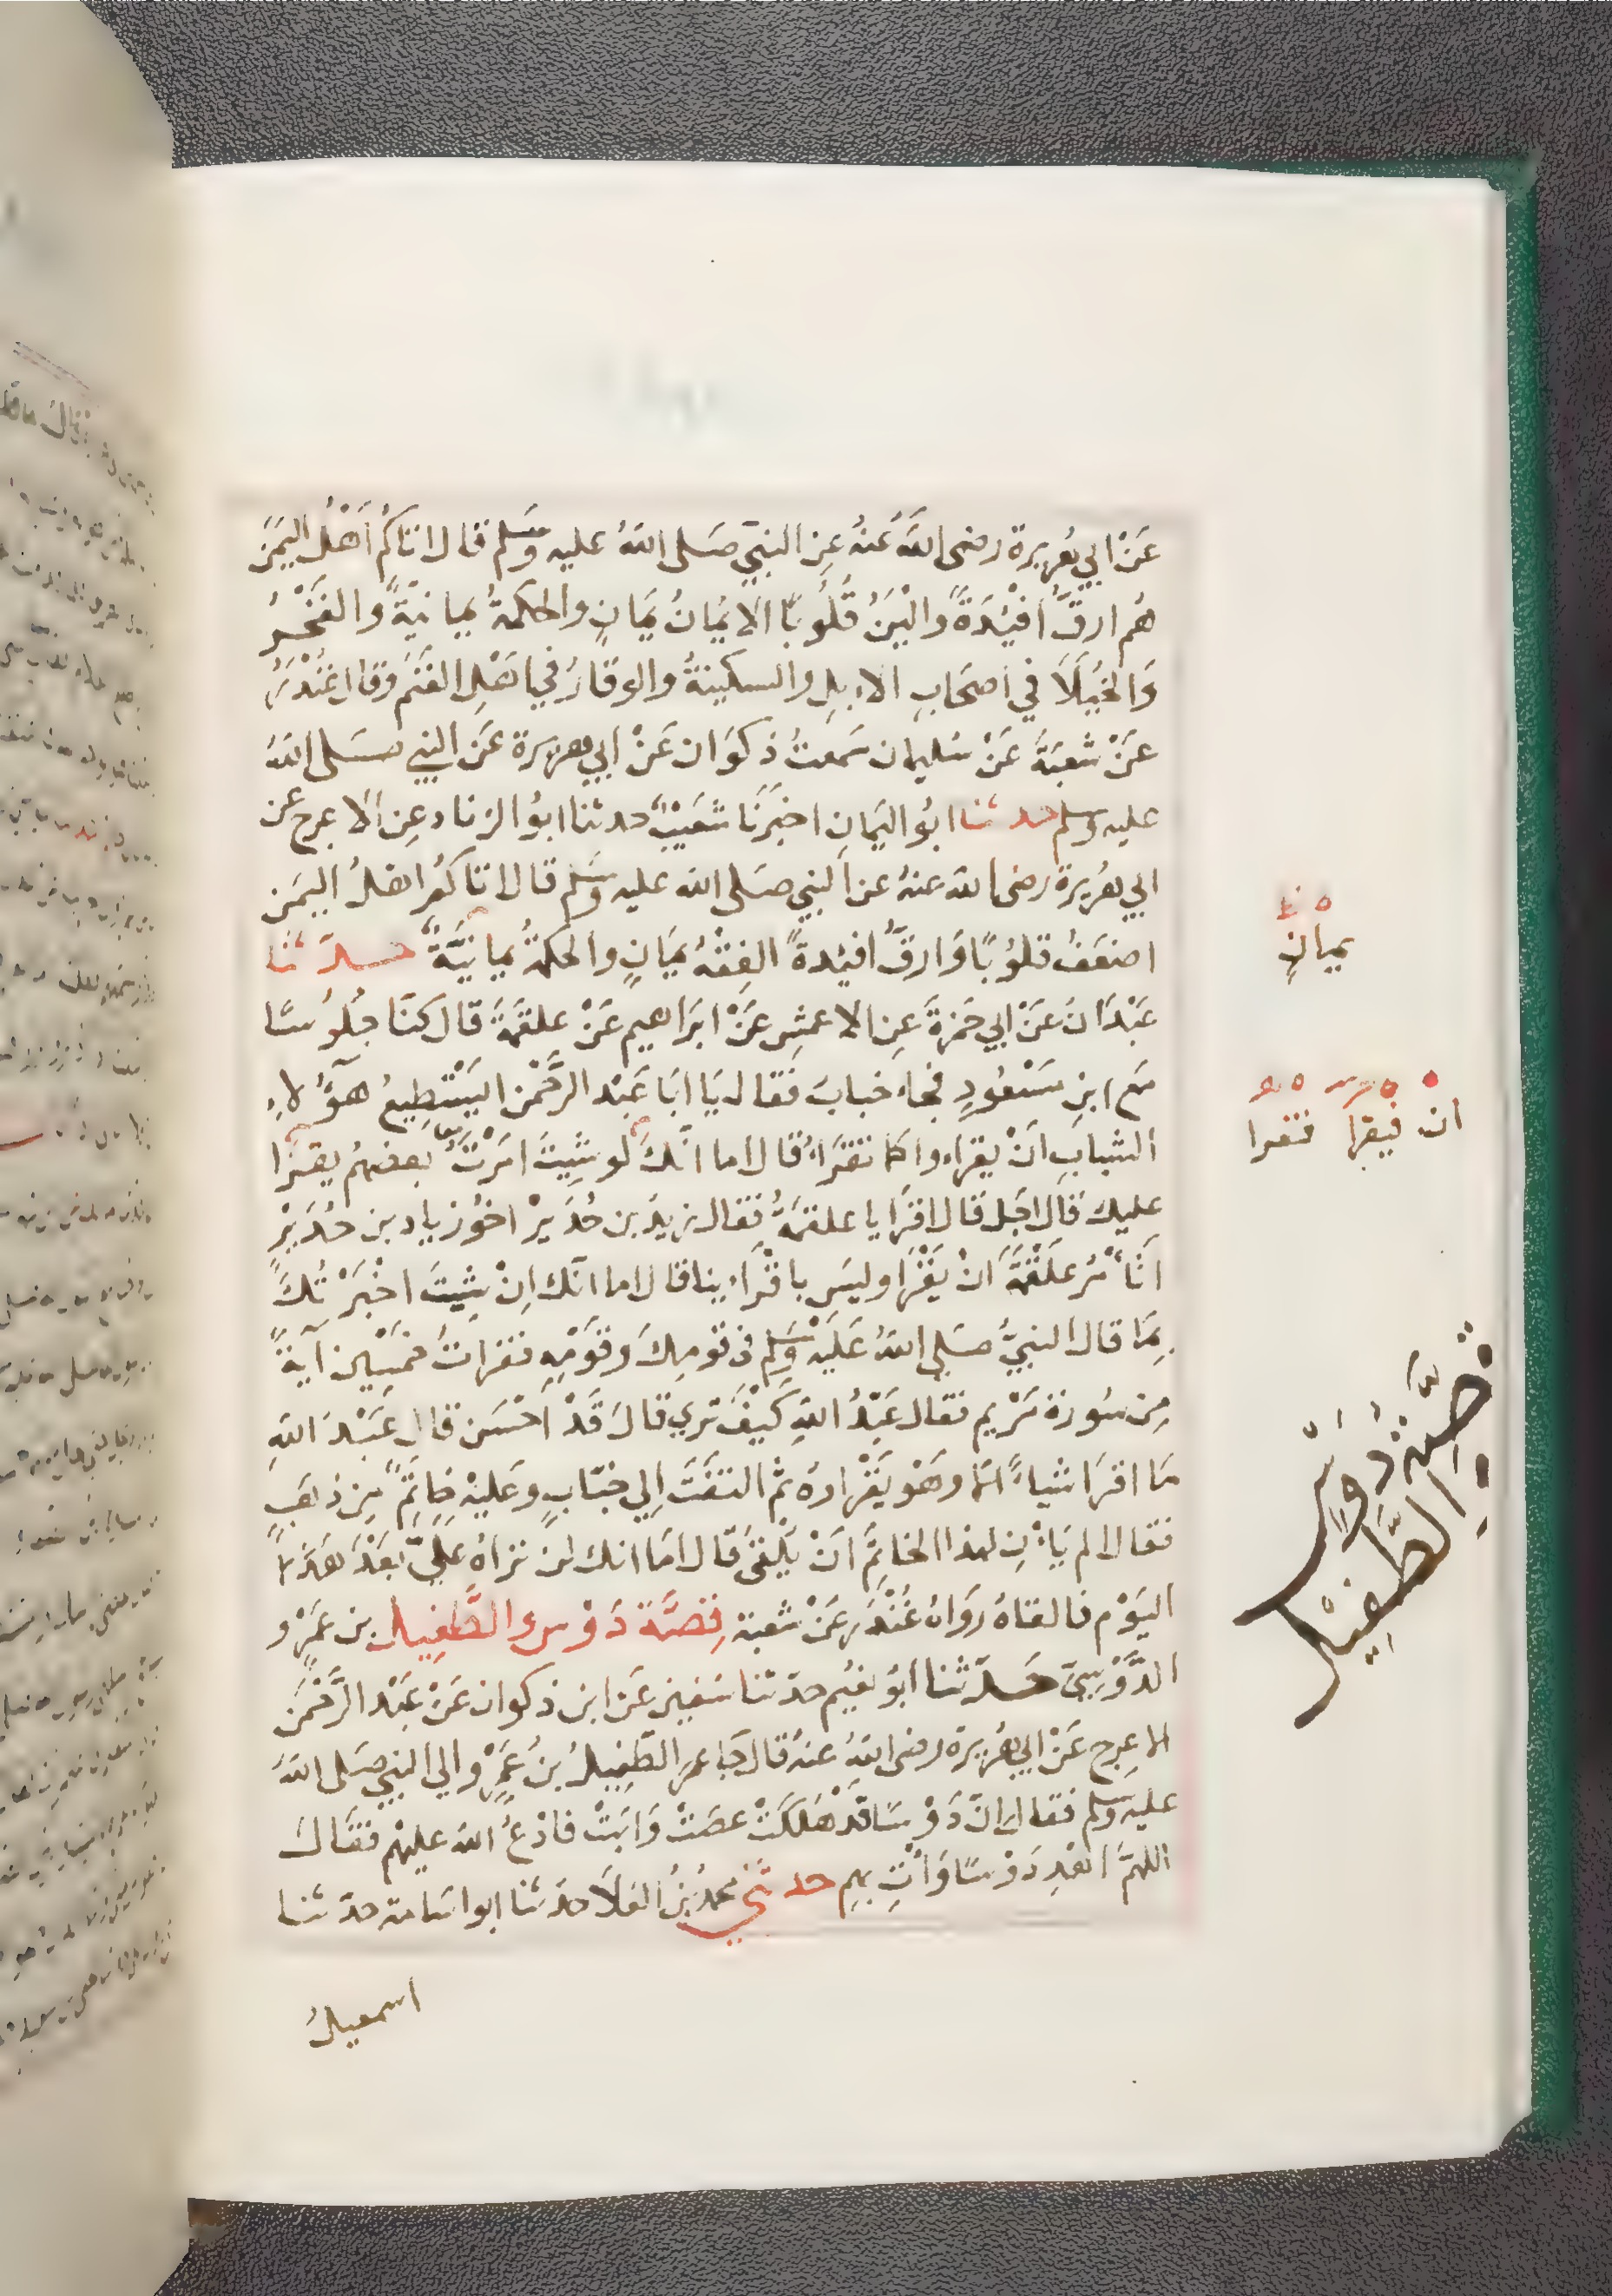 عَنْ ابي هُريرة رضى اللهُ عَنهُ عِن النبيّ صَلى اللهُ عليه وسَلم قال اتاكُم اَهْلُ اليَمَن
هُم ارقُّ افْيُدَةً وَالْيَنُ قُلُوبًا الايمَانُ يَمَانٍ والحِكمةُ يمانيَّةٌ والفَخْرُ
وَالخُيَلَا في اصحَابِ الابِلِ والسكينةُ والوقَارُ في اهَلِ الغَنَم وَقال غُنْدَرٌ
عَنْ شعبَةَ عَنْ سُليمان سَمعتُ ذكوَان عَنْ ابي هريرة عَن النبي صَلى اللهُ
عليه وسلم حدثنا ابُو اليَمانِ اخبَرَنَا شعَيبٌ حدثنا ابوُ الزناد عِن الاعرج عن
ابي هُريرة رضى الله عنهُ عن النبي صَلى الله عليه وسَلم قال اتاكُم اهلُ اليمَن
اضعَفُ قلوُبًا وَارقُّ افيْدةً الفِقْهُ يَمَانٍ والحكمةُ يمانيَّةٌ حدثنَا
عَبْدَانَ عَنْ ابي حَمزةَ عِن الاعمشِ عَنْ ابرَاهيم عَنْ علقمَةَ قال كنَا جُلوُسًا
مَع ابنِ مَسْعُودٍ فجاء خبابَ فقال يَا ابَا عَبْد الرَّحْمن ايَسْتَطِيعُ هَؤُلاءِ
الشبابِ انْ يقراء واكما تقْرَاءُ قال اما انَّكَ لو شيِتَ امَرْتُ بعضهُم يقرَا
عليك قال اجَل قال اقرَا يا علقمةُ فقال زيدَ بن حُدَيرْ اخوُ زياد بن حُدَيرْ
اتَامُرُ علقْمَةَ انْ يَقْرَا وليسَ باقْرَاءينا قال اما انّك اِنْ شِيتَ اخْبَرْتُكَ
بِمَا قال النبيُّ صَلى اللهُ عَليه وَسَلم في قومِكَ وَقوَمْهِ فقرات خمسِين آيةً
مِن سُورة مَرْيم فقال عَبْدُ اللهِ كَيْفَ ترى قالَ قَدْ احْسَن قال عَبْدَ اللهِ
مَا اقرَا شيَاءً الا وهَوُ يَقْراوهُ ثمَّ التفَتَ اِلي خبّابٍ وَعَليْه خاتمٌ مِن ذهَبٍ
فقال الم يَاْن لهذا الخاتمَ انْ يُلْقىَ قال امَا انك لن تراهُ عَليَّ بعَدْ هَذا
اليَوْم فالقاهُ روَاهُ غُنْدَر عَنْ شعبة قِصَّة دَوْس والطُّفِيل بن عَمْرو
الدَّوْسِيِّ حَدَّثنا ابوُ نعَيُم حدثنا سُفيَن عَن ابن ذكوان عَنْ عَبْد الرَّحْمَن
الاعرج عَنْ ابي هُريرة رضى اللهُ عنهُ قال جَا عمر الطّفِيلُ بنُ عَمْرٍو الي النبي صَلى اللهُ
عليه وسلم فقال اِنّ دَوْسَا قدْ هَلكَتْ عصَتْ وَابَتْ فادْعُ اللهَ عليهْم فقَالَ
اللهمَّ اهْدِ دَوْسًا وَأتِ بهِم حدثني محمدُ بنُ العَلَا حدثنا ابو اسَامة حدثنا
اسمعيلُ
يمانٍ
ان فيقرا فقرا
قِصَّة دُوسٍ
والطُّفِيْل